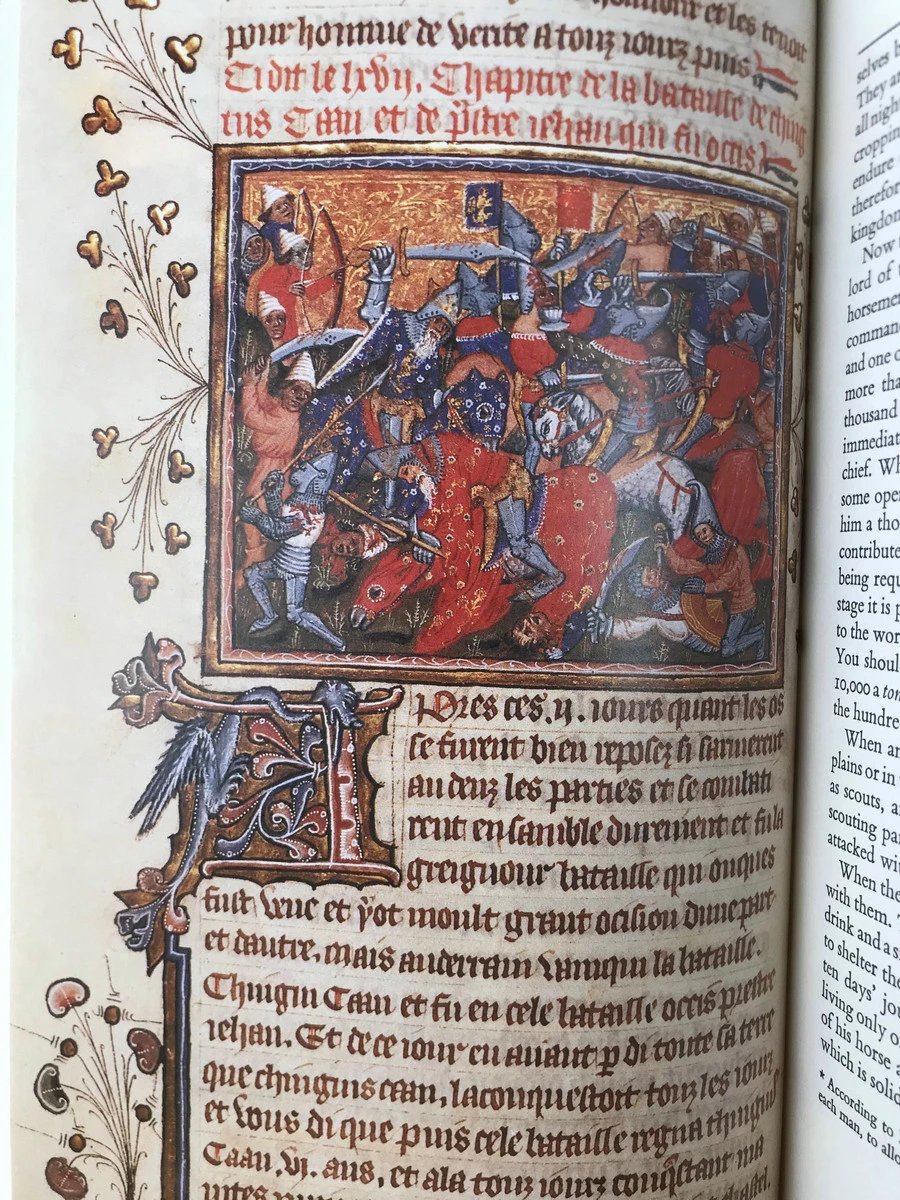 et les tenoit
pour homme de verite a touz iourz puis
Ci dit le lxvii. Chapitre de la bataille de ching
uis Caan et de p̄stre iehan qui fu occis
Apres ces .ij. iours quant les os
se furent bien reposez si sarmerent
an deux les parties et se combati
rent ensamble durement et fu la
greignour bataille qui onques
fust veue et y ot moult grant ocision dune part
et dautre, mais au derrain vainqui la bataille.
Chingin Caan et fu en cele bataille occis prestre
iehan. Et de ce iour en auant p di toute sa terre
que chinguis caan, la conquestoit touz les iours
et vous di que puis cele bataille regna chinguis
Caan .vi. ans, et ala touz iourz conq̄stant ma
selves b
They ar
all night
croppin
endure
therefor
kingdon
Now t
lord of t
horsemen
comman
and one o
more tha
thousand
immediat
chief. Wh
some oper
him a tho
contribute
being requ
stage it is p
to the wor
You shoul
10,000 a ton
the hundre
When an
plains or in
as scouts, a
scouting par
attacked wit
When the
with them. T
drink and a s
to shelter the
ten days' jou
living only o
of his horse a
which is solid
* According to
each man, to allo